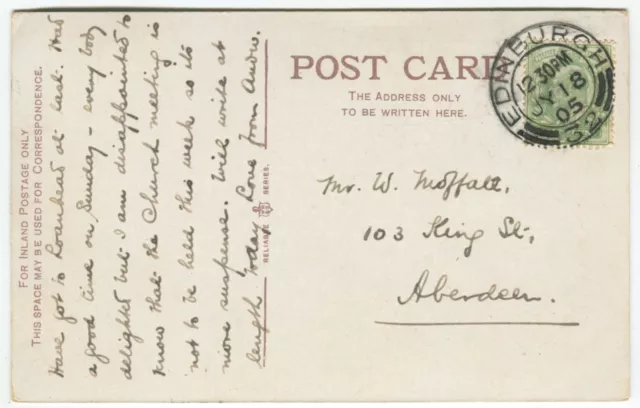 FOR INLAND POSTAGE ONLY
THIS SPACE MAY BE USED FOR CORRESPONDENCE.
Have got to Loanhead at last. Had
a good time on Sunday - every body
delighted but I am disappointed to
know that the Church meeting is
not to be held this week so its
more suspense. Will write at
length today Love from Andw.
RELIABLE SERIES.
POST CARD
THE ADDRESS ONLY
TO BE WRITTEN HERE.
EDINBURGH
12.30PM
JY 18
05
32
Mr. W. Moffatt,
103 King St.,
Aberdeen.